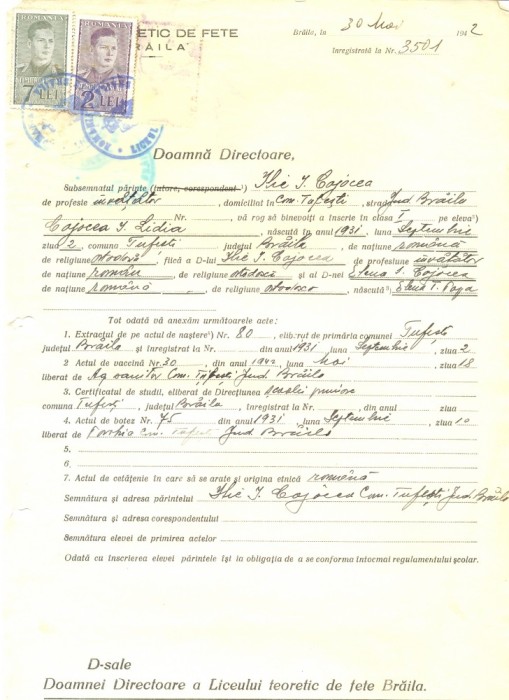 ROMANIA ROMANIA
7 LEI 2 LEI
RETIC DE FETE
BRĂILA
Brăila, în 30 Mai 1942
înregistrată la Nr. 3501
Doamnă Directoare,
Subsemnatul părinte (tutore, corespondent ¹) Ilie I. Cojocea
de profesie învățător, domiciliat în Com. Tufești, strada Jud Brăila
Nr. vă rog să binevoiți a înscrie în clasa I pe eleva²)
Cojocea I. Lidia născută în anul 1931, luna Septembrie
ziua 2, comuna Tufești județul Brăila, de națiune română
de religiune ortodoxă, fiică a D-lui Ilie I. Cojocea de profesiune învățător
de națiune român, de religiune ortodoxă și al D-nei Elena I. Cojocea
de națiune română, de religiune ortodoxă, născută³) Elena T. Popa
Tot odată vă anexăm următoarele acte:
1. Extractul de pe actul de naștere⁴) Nr. 80, eliberat de primăria comunei Tufești
județul Brăila și înregistrat la Nr. din anul 1931 luna Septembrie, ziua 2
2 Actul de vaccină Nr. 30 din anul 1942 luna Mai ziua 18
liberat de Ag sanitar Com. Tufești Jud. Brăila
3. Certificatul de studii, eliberat de Direcțiunea școalei primare
comuna Tufești, județul Brăila, înregistrat la Nr. din anul ziua
4. Actul de botez Nr. 75 din anul 1931 luna Septembrie ziua 10
liberat de Parohia Com. Tufești Jud Brăila
5.
6.
7. Actul de cetățenie în care să se arate și origina etnică română
Semnătura și adresa părintelui Ilie I. Cojocea Com. Tufești Jud. Brăila
Semnătura și adresa corespondentului
Semnătura elevei de primirea actelor
Odată cu înscrierea elevei părintele își ia obligația de a se conforma întocmai regulamentului școlar.
D-sale
Doamnei Directoare a Liceului teoretic de fete Brăila.